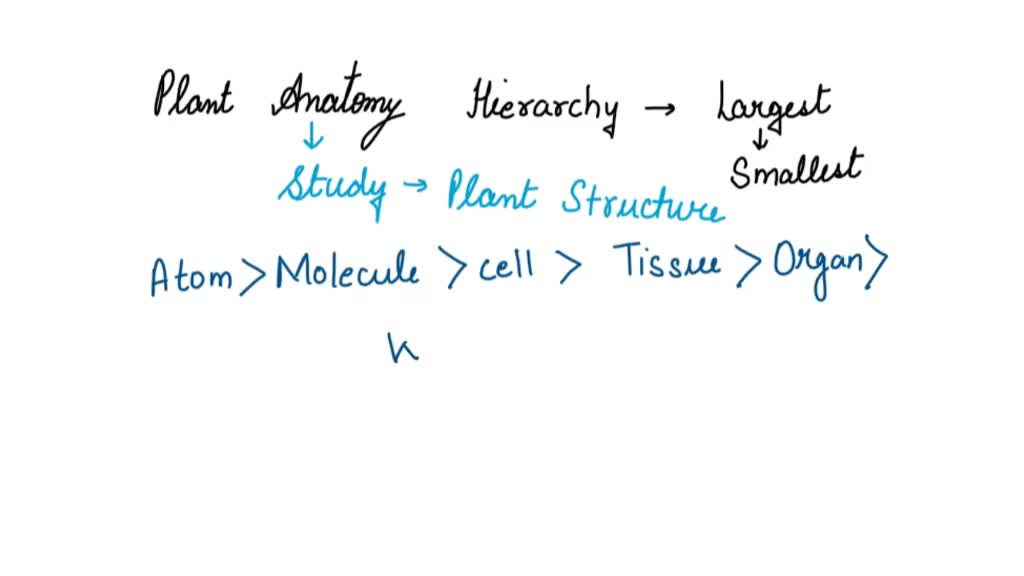 Plant Anatomy Hierarchy → Largest
↓ ↓
Study → Plant Structure Smallest
Atom > Molecule > cell > Tissue > Organ >
h